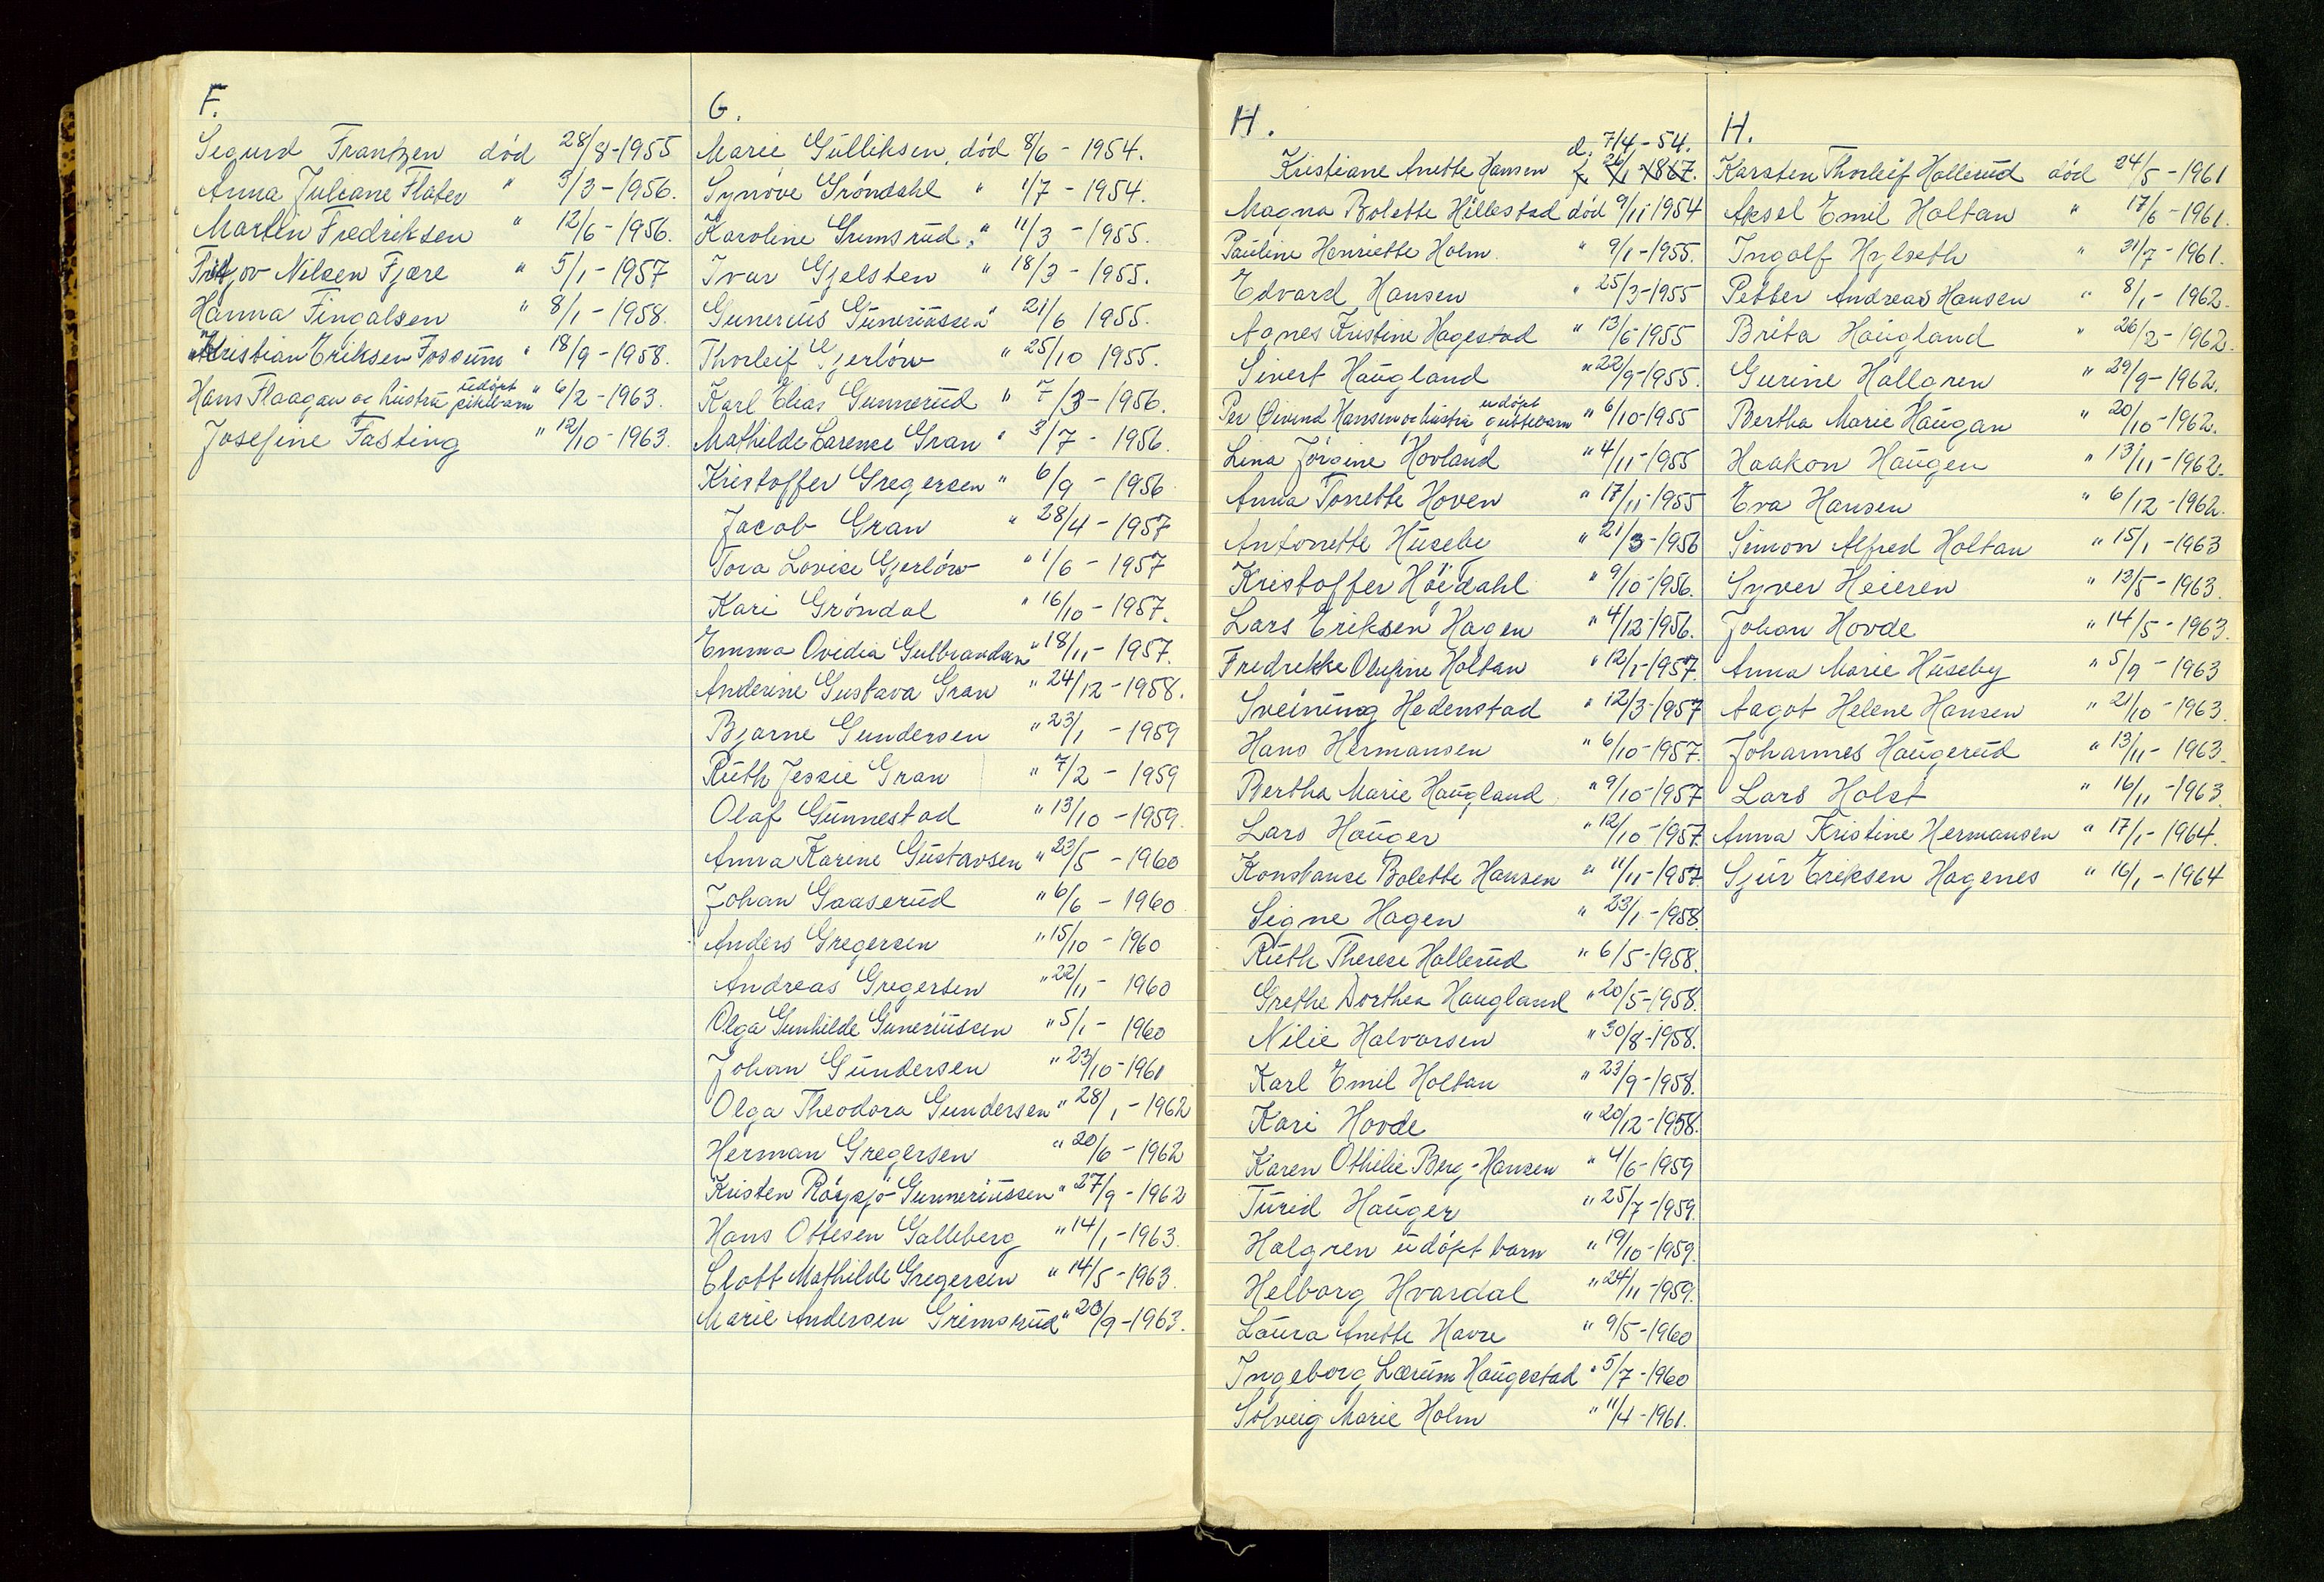 F.
Sigurd Frantzen død 28/8-1955
Anna Juliane Flåter " 3/3-1956.
Martin Fredriksen " 12/6-1956.
Fritjov Nilsen Fjære " 5/1-1957
Hanna Fingalsen " 8/1-1958.
Kristian Eriksen Fossum " 18/9-1958.
Hans Flaagan og hustru udöpt pikebarn " 6/2-1963.
Josefine Fasting " 12/10-1963.
G.
Marie Gulliksen, död 8/6-1954.
Synöve Gröndahl " 1/7-1954.
Karoline Grimsrud, " 11/3-1955.
Ivar Gjelsten " 18/3-1955.
Gunerius Guneriussen " 21/6 1955.
Thorleif Gjerlöw " 25/10 1955.
Karl Elias Gunnerud " 7/3-1956.
Mathilde Larense Gran " 3/7-1956.
Kristoffer Gregersen " 6/9-1956
Jacob Gran " 28/4-1957
Tora Lovise Gjerlöw " 1/6-1957
Kari Gröndal " 16/10-1957.
Emma Ovidia Gulbrandsen " 18/11-1957.
Anderine Gustava Gran " 24/12-1958.
Bjarne Gundersen " 23/1-1959
Ruth Jessie Gran " 7/2-1959
Olaf Gunnestad " 13/10-1959.
Anna Karine Gustavsen " 23/5-1960
Johan Gaaserud " 6/6-1960
Anders Gregersen " 15/10-1960
Andreas Gregersen " 22/11-1960
Olga Gunhilde Guneriussen " 5/1-1960
Johan Gundersen " 23/10-1961
Olga Theodora Gundersen " 28/1-1962
Herman Gregersen " 20/6-1962
Kristen Röysjö-Gunneriussen " 27/9-1962
Hans Ottesen Galleberg " 14/1-1963.
Elott Mathilde Gregersen " 14/5-1963.
Marie Andersen Grimsrud " 20/9-1963.
H.
d. 7/4-54.
Kristiane Anette Hansen f. 26/1 1867.
Magna Bolette Hillestad död 9/11 1954
Pauline Henriette Holm " 9/1-1955.
Edvard Hansen " 25/3-1955
Agnes Kristine Hagestad " 13/6 1955
Sivert Haugland " 22/9-1955.
Per Öivind Hansen og hustru udöpt guttebarn " 6/10-1955
Lina Jörgine Hovland " 4/11-1955
Anna Tonette Hoven " 17/11-1955
Antonette Huseby " 21/3-1956
Kristoffer Höidahl " 9/10-1956.
Lars Eriksen Hagen " 4/12-1956.
Fredrikke Olufine Holtan " 12/1-1957.
Sveinung Hedenstad " 12/3-1957
Hans Hermansen " 6/10-1957.
Bertha Marie Haugland " 9/10-1957
Lars Hauger " 12/10-1957
Konstanse Bolette Hansen " 11/11-1957.
Signe Hagen " 23/1-1958.
Ruth Therese Hallerud " 6/5-1958.
Grethe Dorthea Haugland " 20/5-1958.
Nilie Halvorsen " 30/8-1958.
Karl Emil Holtan " 23/9-1958.
Kari Hovde " 20/12-1958.
Karen Othilie Berg-Hansen " 4/6-1959
Turid Hauger " 25/7-1959.
Halgren udöpt barn " 19/10-1959.
Helborg Hvardal " 24/11-1959.
Laura Anette Havre " 9/5-1960
Ingeborg Lærum Haugestad " 5/7-1960
Solveig Marie Holm " 11/4-1961.
H.
Karsten Thorleif Hallerud död 24/5-1961
Aksel Emil Holtan " 17/6-1961.
Ingolf Hylseth " 31/7-1961.
Petter Andreas Hansen " 8/1-1962.
Brita Haugland " 26/2-1962.
Gurine Hallgren " 29/9-1962.
Bertha Marie Haugan " 20/10-1962.
Haakon Haugen " 13/11-1962.
Eva Hansen " 6/12-1962.
Simon Alfred Holtan " 15/1-1963
Syver Heieren " 13/5-1963.
Johan Hovde " 14/5-1963.
Anna Marie Huseby " 5/9-1963
Aagot Helene Hansen " 21/10-1963.
Johannes Haugerud " 13/11-1963.
Lars Holst " 16/11-1963.
Anna Kristine Hermansen " 17/1-1964.
Sjur Eriksen Hagenes " 16/1-1964